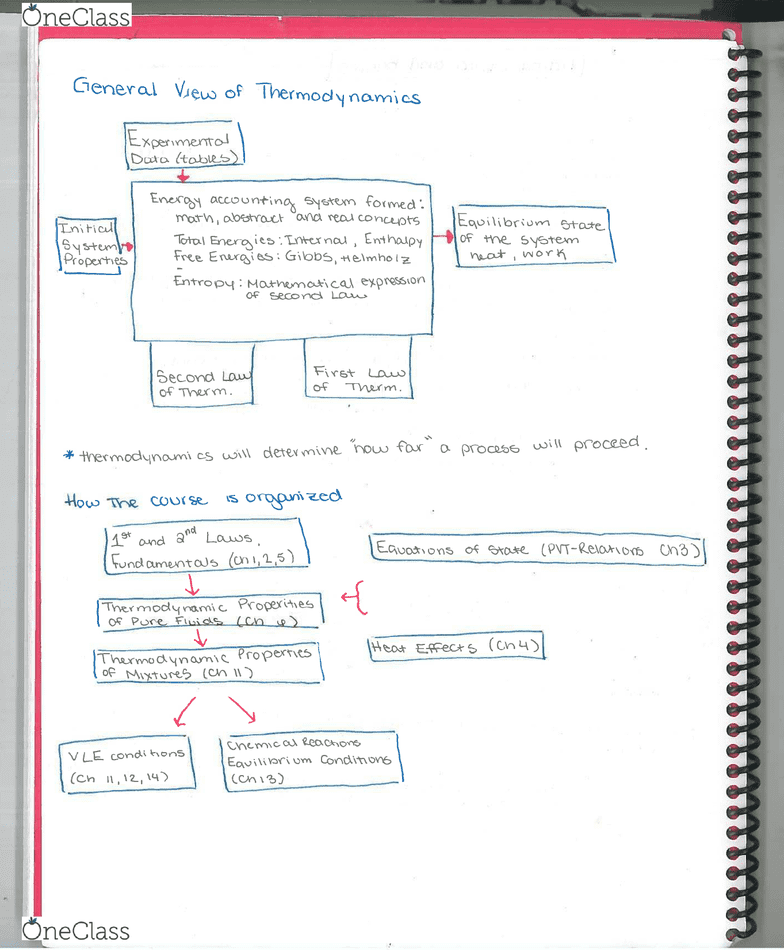 OneClass
General View of Thermodynamics
Experimental
Data (tables)
Energy accounting system formed:
math, abstract and real concepts
Total Energies: Internal, Enthalpy
Free Energies: Gibbs, Helmholz
-
Entropy: Mathematical expression
of Second Law
Initial
System
Properties
Equilibrium State
of the system
heat, work
Second Law
of Therm.
First Law
of Therm.
* thermodynamics will determine "how far" a process will proceed.
How The course is organized
1st and 2nd Laws,
Fundamentals (Ch 1, 2, 5)
Equations of State (PVT-Relations Ch3)
Thermodynamic Properities
of Pure Fluids (Ch 6)
Thermodynamic Properties
of Mixtures (Ch 11)
Heat Effects (Ch4)
VLE conditions
(Ch 11, 12, 14)
Chemical Reactions
Equilibrium Conditions
(Ch13)
OneClass